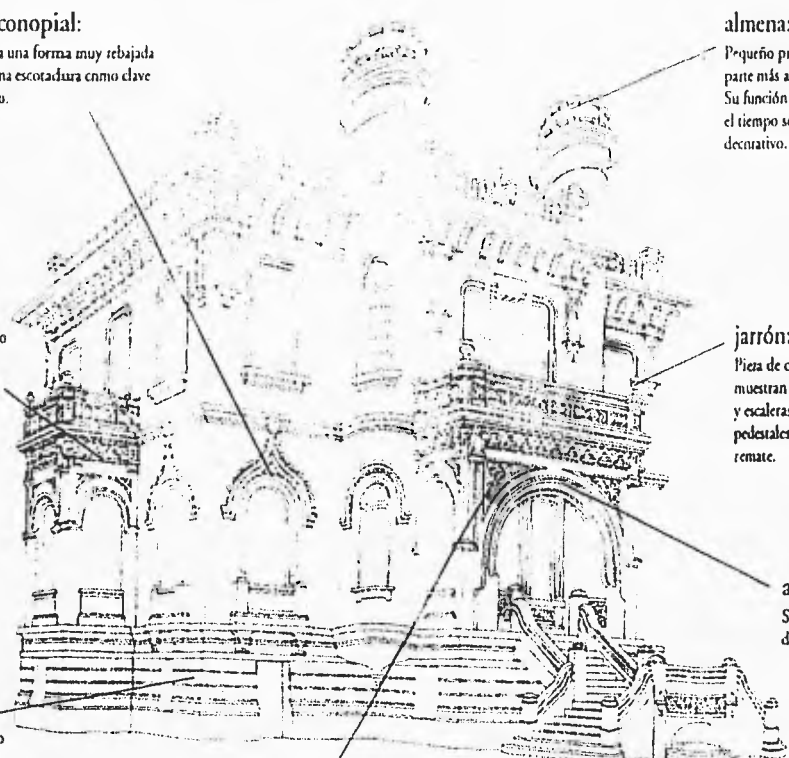 conopial:
a una forma muy rebajada
na escotadura como clave
o.
almena:
Pequeño pr
parte más a
Su función
el tiempo se
decorativo.
o
jarrón:
Pieza de c
muestran
y escaleras
pedestales
remate.
a
S
d
o